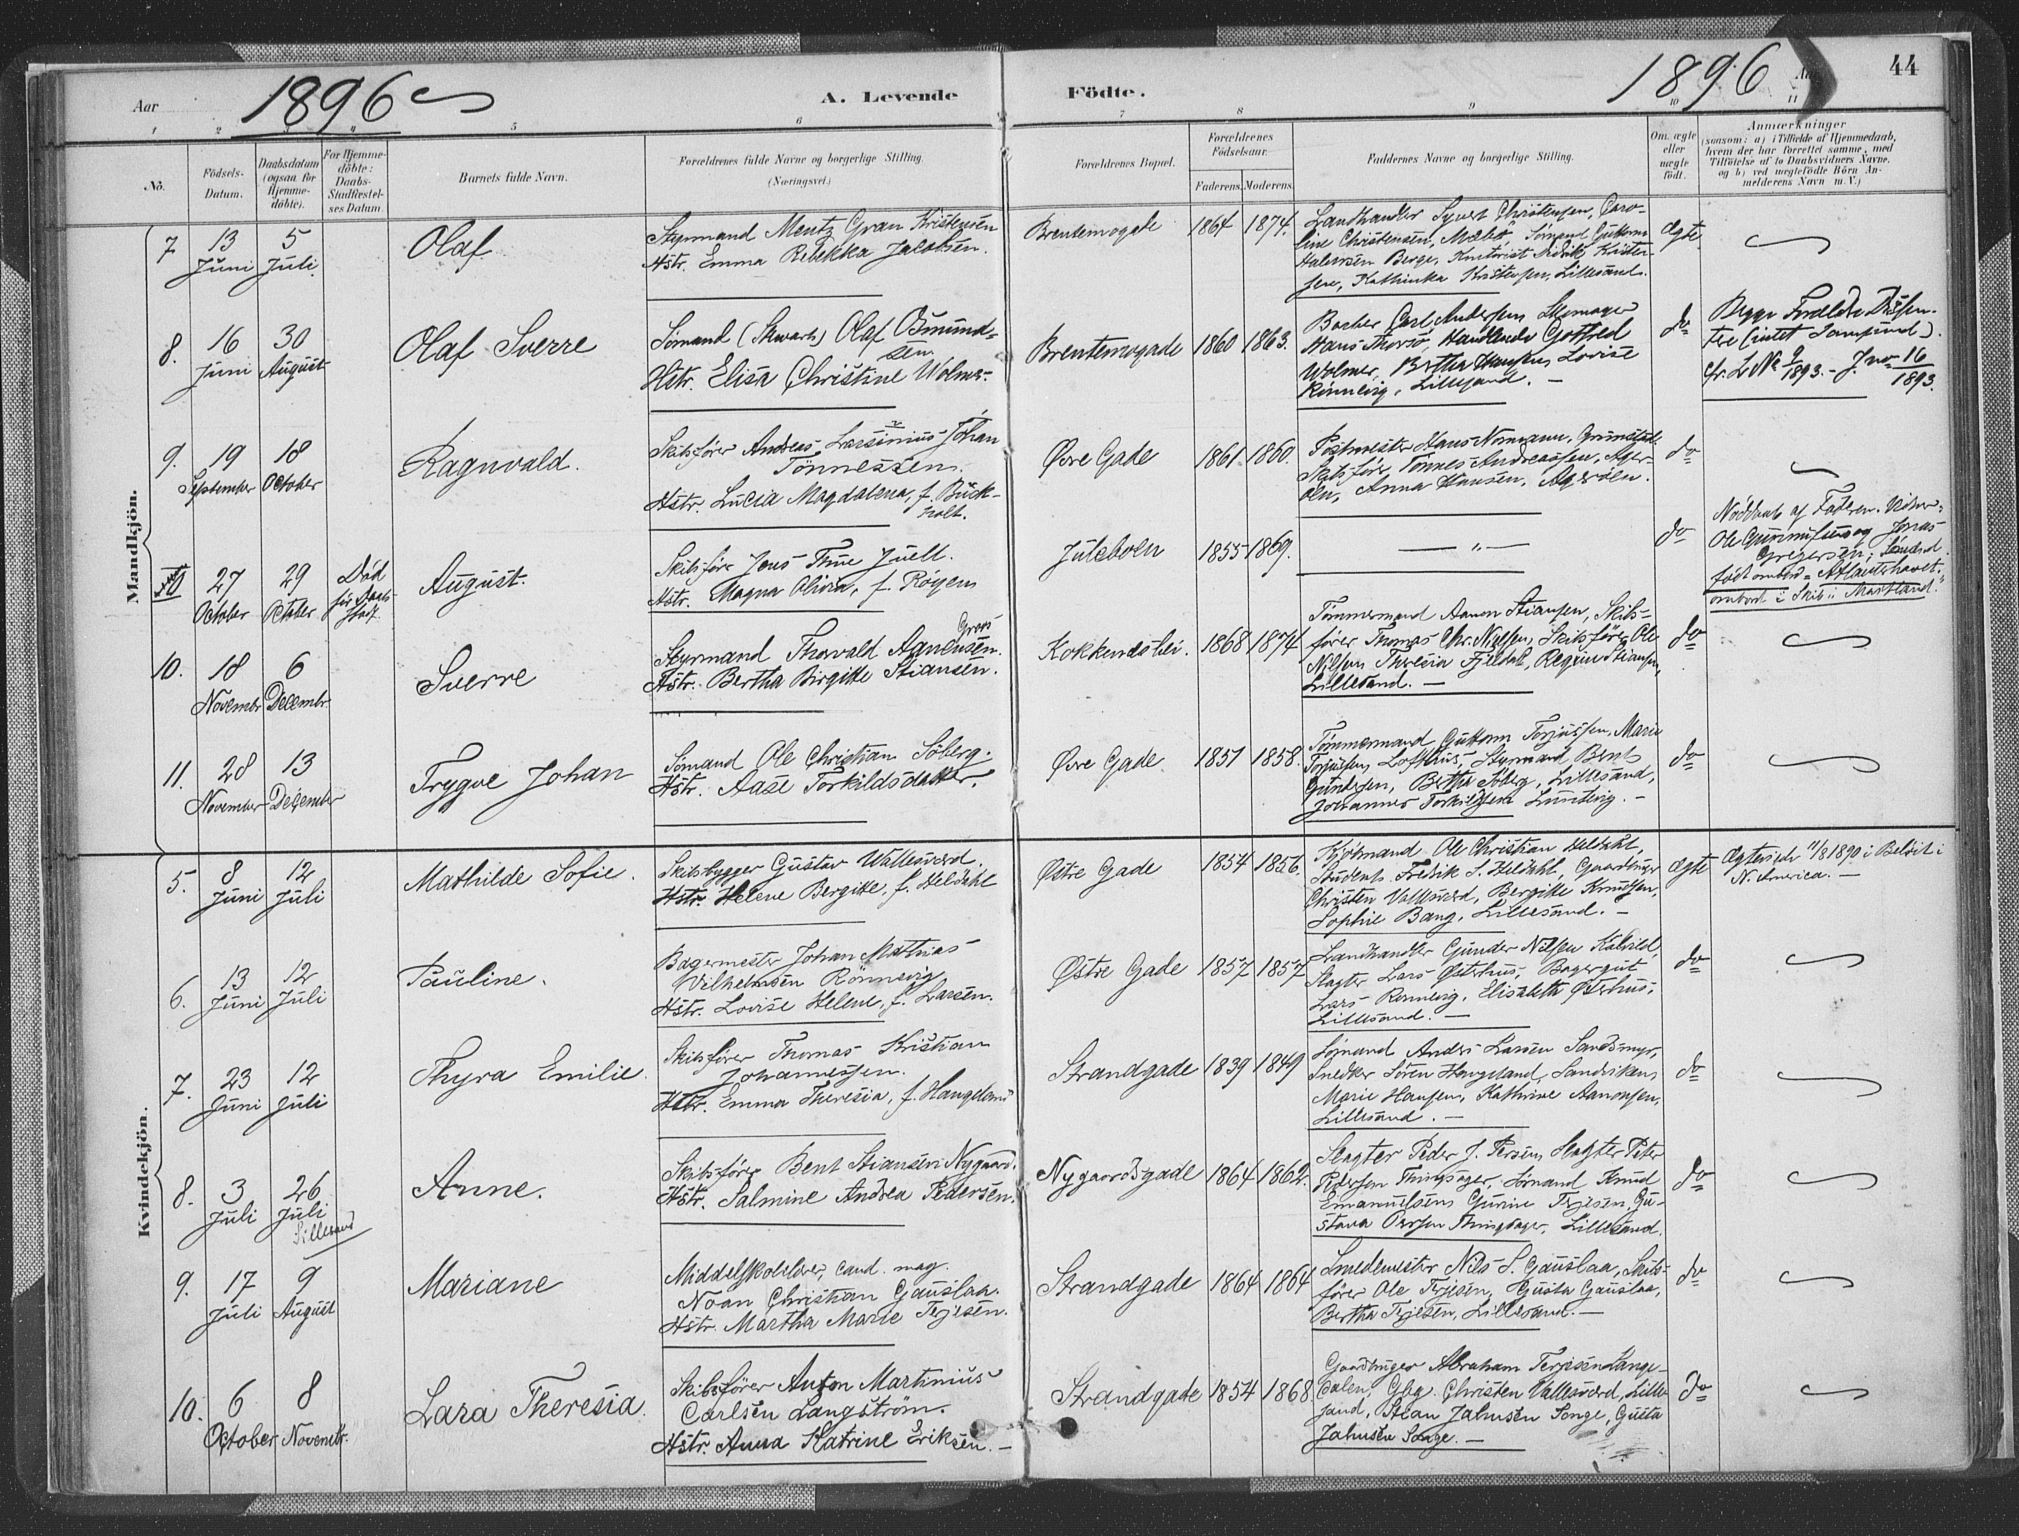 Aar 1896
A. Levende
Födte.
1896
Aar
44
1 2 3 4 5 6 7 8 9 10 11
No.
Födsels-Datum.
Daabsdatum (ogsaa for Hjemmedöbte).
For Hjemmedöbte: Daabs-Stadfæstelses Datum.
Barnets fulde Navn.
Forældrenes fulde Navne og borgerlige Stilling.
(Næringsvei.)
Forældrenes Bopæl.
Forældrenes Födselsaar.
Faderens. Moderens.
Faddernes Navne og borgerlige Stilling.
Om ægte eller uægte født.
Anmærkninger
(saasom: a) i Tilfælde af Hjemmedaab, hvem der har forrettet samme, med Tilføielse af to Daabsvidners Navne, og b) ved uægtefødte Börn Anmelderens Navn m. V.)
Mandkjön.
7 13 Juni 5 Juli
Olaf
Styrmand Mentz Gran Kristensen
Hstr. Emma Rebekka Jacobsen.
Brentemogade 1864 1874.
Landhandler Syvert Christensen, Caroline Christensen,
Lillesand.
Ægte
8. 16 Juni 30 August
Olaf Sverre
Sömand (Stuart) Olaf Osmundsen
Hstr. Elisa Christine Wolmer.
Brentemogade 1860 1863.
Barber Carl Andersen
Hans Thorsö, Handlende Gotfred
Wolmer, Bertha Hansen, Lovise
Rönnevig, Lillesand. —
do
9. 19 September 18 October
Ragnvald.
Skibsfører Andreas Larsinius Johan
Tönnessen.
Hstr. Lucia Magdalena, f. Bück-
holt.
Øvre Gade 1861 1860.
Postmester Hans Normann, Grimstad
Skibsfører Tönnes Andreassen, Ager-
öen, Anna Hansen, Agerøen.
do
10 27 October 29 October
Död för Daabs-
August.
Skibsfører Jens Thue Juell.
Hstr. Magna Olivia, f. Röyem
Juleboen 1855 1869.
— „ —
do
Nöddaab af Faderen.
Jonas
Gregersen, Sömænd
født ombord = Atlanterhavet.
ombord i Skib: "Marthand."
10. 18 Novembr 6 Decembr
Sverre
Styrmand Thorvald Agnensen.
Hstr. Bertha Birgitte Stiansen.
Kokkeneshei. 1868 1874
Tömmermand Aanon Stiansen, Skibs-
fører Thomas Chr. Nielsen, Skibsfører Ole
Nilsen, Theresia Fjeldal, Regine Stiansen,
Lillesand. —
do
11. 28 November 13 December
Trygve Johan
Sømand Ole Christian Söberg.
Hstr. Aase Torkildsdatter.
Øvre Gade. 1851 1858.
Tömmermand Guttorm Torjussen, Marie
Torjussen, Lofthus, Styrmand Bent
Gundersen, Bertha Söberg, Lillesand,
Johannes Torkildsen Lundevig. —
do
Kvindekjön.
5. 8 Juni 12 Juli
Mathilde Sofie.
Skibsbygger Gustav Vallesværd.
Hstr. Helene Bergitte, f. Heldahl
Østre Gade 1854 1856.
Kjöbmand Ole Christian Heldahl,
Student Fredrik S. Heldahl, Gaardbruger
Christen Vallesværd, Bergitte Knudsen,
Sophie Bang, Lillesand. —
Ægte
Ægteviede 11/8 1890 i Beloit i
N. America. —
6. 13 Juni 12 Juli
Pauline.
Bagermester Johan Mathias
Wilhelmsen Rönnevig
Hstr. Lovise Helene, f. Larsen.
Østre Gade 1857 1857
Landhandler Gunder Nilsen Kalvild,
Slagter Lars Østerhus, Bagergut
Lars Rønnevig, Elisabeth Østerhus,
Lillesand. —
do
7. 23 Juni 12 Juli
Thyra Emilie.
Skibsfører Thomas Kristian
Johannessen.
Hstr. Emma Theresia, f. Haugeland
Strandgade 1839 1849
Sømand Anders Larsen Sandsmyr,
Snedker Sören Haugeland, Sandviken,
Marie Hansen, Kathrine Aanonsen,
Lillesand. —
do
8. 3 Juli 26 Juli
Lillesand
Anne.
Skibsfører Bent Stiansen Nygaard.
Hstr. Salmine Andrea Pedersen.
Nygaardsgade 1864 1862.
Slagter Peder J. Persen, Slagter Peter
Pedersen Thingsager, Sömand Knud
Emanuelsen, Gunine Terjesen, Gu-
stava Persen Thingsager, Lillesand.
do
9. 17 Juli 9 August
Mariane
Middelskolelærer, cand. mag.
Noan Christian Gauslaa.
Hstr. Martha Marie Terjesen.
Strandgade 1864 1864
Smedemester Nils S. Gauslaa, Skibs-
fører Ole Terjesen, Gusta Gauslaa,
Bertha Terjesen, Lillesand. —
do
10. 6 October 8 Novembr.
Lara Theresia.
Skibsfører Anton Martinius
Carlsen Langström.
Hstr. Anna Katrine Eriksen. —
Strandgade 1854 1868
Gaardbruger Abraham Terjesen Lange-
dalen, Gbg. Christen Vallesværd, Lille-
sand, Stean Jahnsen Songe, Gusta
Jahnsen Songe. —
do